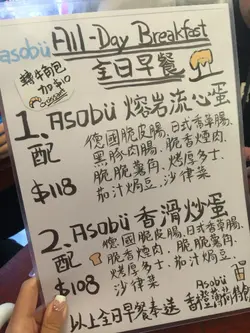 asobü All-Day Breakfast
全日早餐
轉牛角包
加$10
Croissant
1. Asobü 熔岩流心蛋
配 德國脆皮腸、日式香草腸、
黑豚肉腸、脆香煙肉、
脆脆薯角、烤厚多士、
$118 茄汁焗豆、沙律菜
2. Asobü 香滑炒蛋
配 德國脆皮腸、日式香草腸、
脆香煙肉、脆脆薯角、
烤厚多士、茄汁焗豆、
$108 沙律菜
以上全日早餐奉送 Asobü